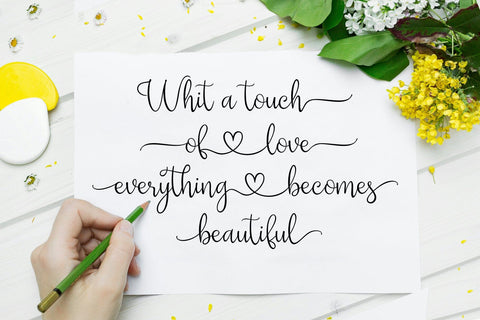 Whit a touch
of♡love
everything♡becomes
beautiful